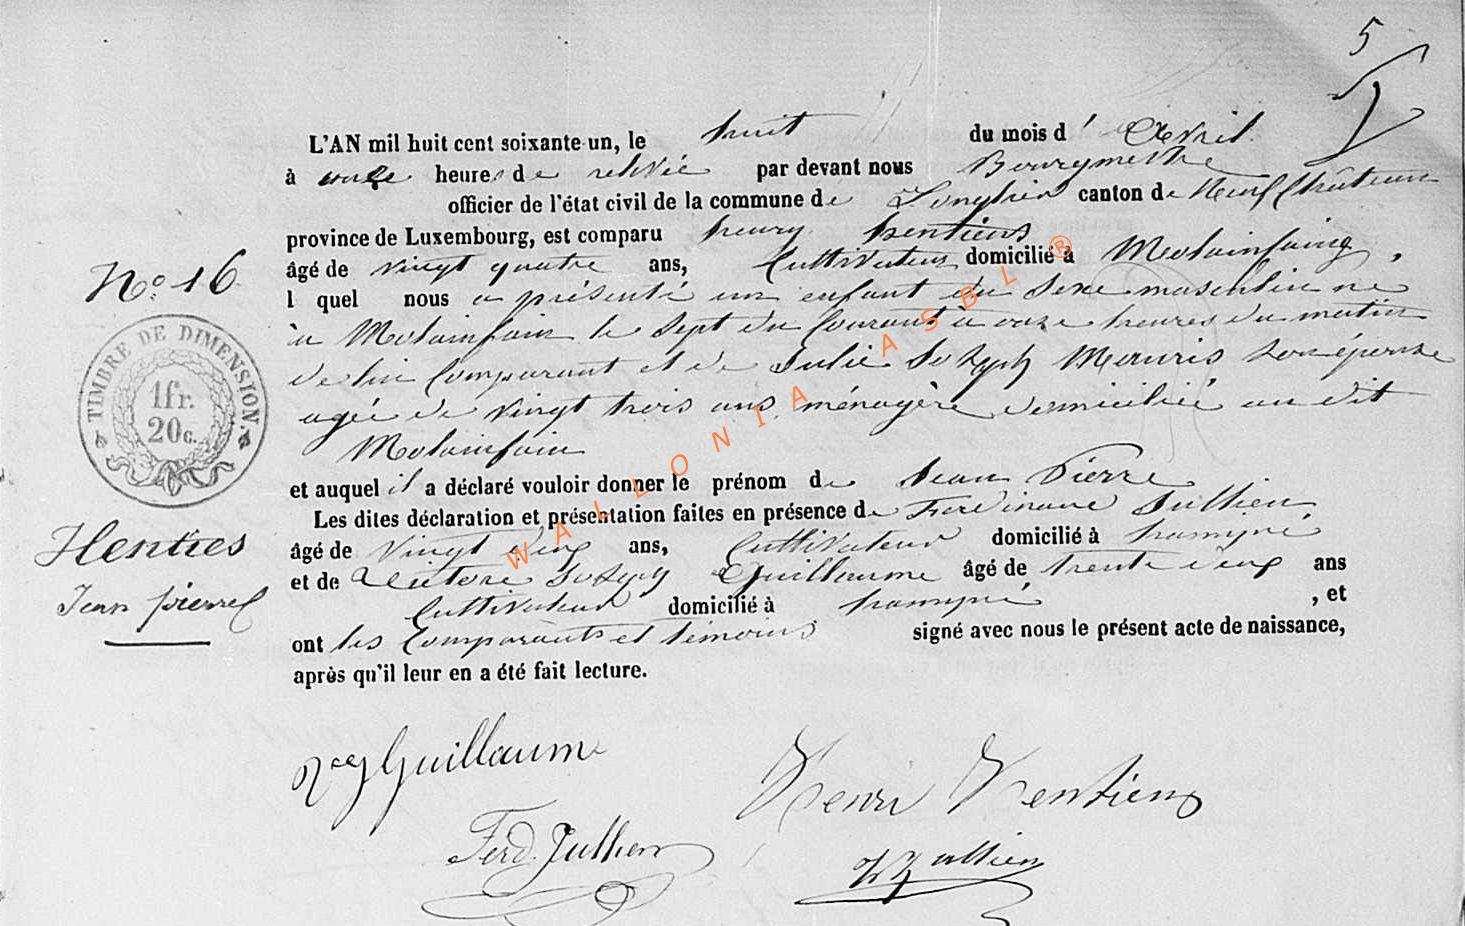 5
L'AN mil huit cent soixante-un, le huit du mois d' Avril
à onze heures de relevée par devant nous Bourgmestre
officier de l'état civil de la commune de Longlier canton de Neufchâteau
province de Luxembourg, est comparu henry hentiens
âgé de vingt quatre ans, Cultivateur domicilié à Molainfaing,
l quel nous a présenté un enfant du Sexe masculin né
à Molainfain le Sept du Courant à onze heures du matin
de lui Comparant et de Julie Joseph Mouris Son épouse
agée de vingt trois ans, ménagère domiciliée au dit
Molainfain
et auquel il a déclaré vouloir donner le prénom de Jean Pierre
Les dites déclaration et présentation faites en présence de Ferdinand Jullien
âgé de vingt deux ans, Cultivateur domicilié à hamipré
et de Joseph Guillaume âgé de trente deux ans
Cultivateur domicilié à hamipré, et
ont les Comparants et témoins signé avec nous le présent acte de naissance,
après qu'il leur en a été fait lecture.
No. 16
TIMBRE DE DIMENSION.
1fr.
20c.
Henties
Jean pierre
Guillaume
Henri Hentiens
Ferd. Jullien
Jullien
WALLONIA ASBL ®